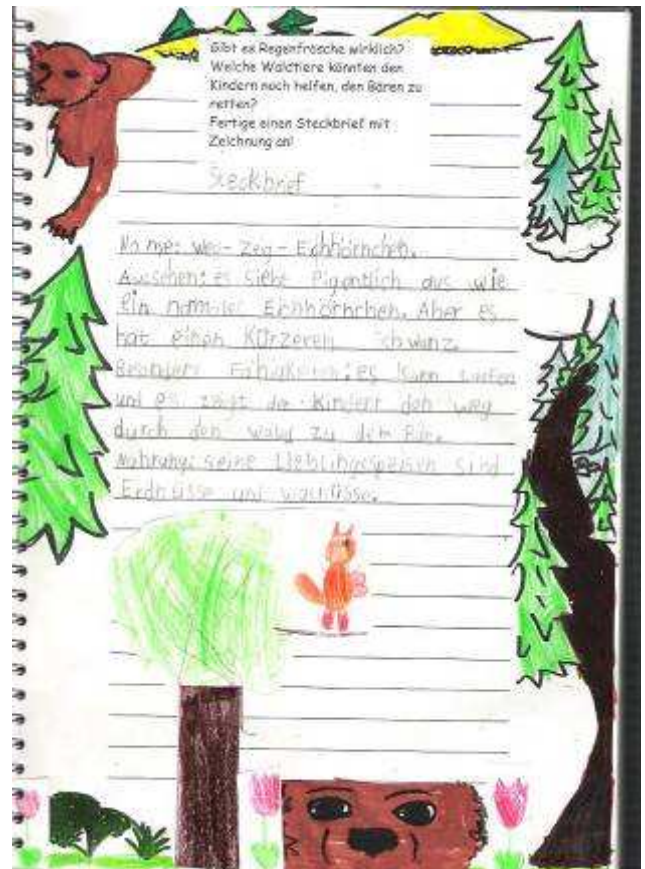 Gibt es Regenfrösche wirklich?
Welche Waldtiere könnten den
Kindern noch helfen, den Bären zu
retten?
Fertige einen Steckbrief mit
Zeichnung an!
Steckbrief
Name: Weg-Zeg-Eichhörnchen.
Aussehen: es sieht eigentlich aus wie
ein normales Eichhörnchen. Aber es
hat einen Kürzeren schwanz.
Besondere Fähigkeiten: es kann
und es zeigt den Kindern den weg
durch den wald zu dem Bär.
Nahrung: seine Lieblingsspeisen sind
Erdnüsse und walnüsse.